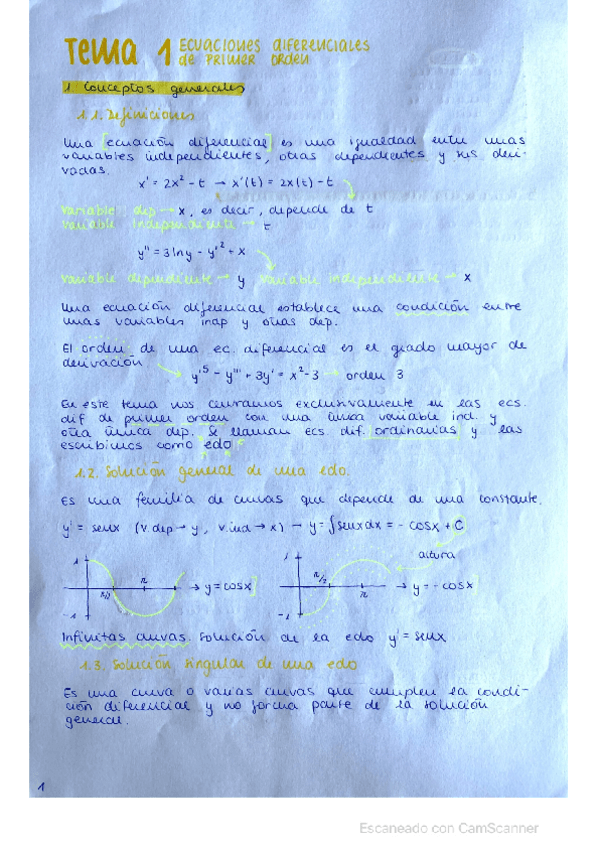 Tema 1 ECUACIONES DIFERENCIALES
de PRIMER ORDEN
1 Conceptos generales
1.1. Definiciones
Una [ecuación diferencial] es una igualdad entre unas
variables independientes, otras dependientes y sus deri-
vadas.
x' = 2x² - t → x'(t) = 2x(t) - t
variable dep → x, es decir, depende de t
variable independiente → t
y'' = 3 ln y - y'² + x
variable dependiente → y variable independiente → x
Una ecuación diferencial establece una condición entre
unas variables inap y otras dep.
El orden de una ec. diferencial es el grado mayor de
derivación
y'⁵ - y''' + 3y' = x² - 3 → orden 3
En este tema nos centramos exclusivamente en las ecs.
dif de primer orden con una única variable ind. y
otra única dep. Se llaman ecs. dif. ordinarias y las
escribimos como edo
1.2. Solución general de una edo.
Es una familia de curvas que depende de una constante.
y' = senx (v.dep → y, v.ind → x) → y = ∫senxdx = - cosx + C
altura
1 π/2 π -1 → y = cosx
1 π/2 π -1 → y = - cosx
Infinitas curvas. Solución de la edo y' = senx
1.3. Solución singular de una edo
Es una curva o varias curvas que cumplen la condi-
ción diferencial y no forma parte de la solución
general.
1
Escaneado con CamScanner